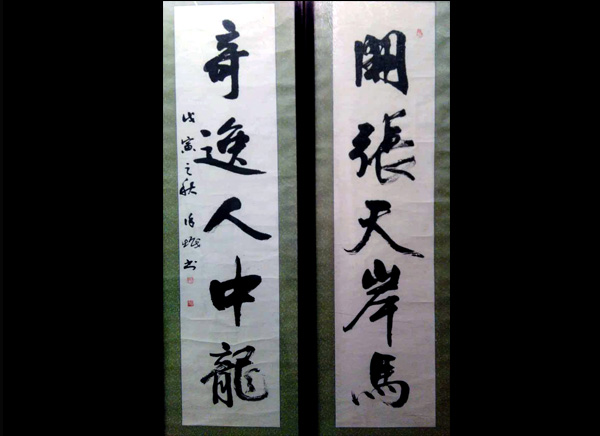 開張天岸馬
奇逸人中龍
戊寅之秋
书